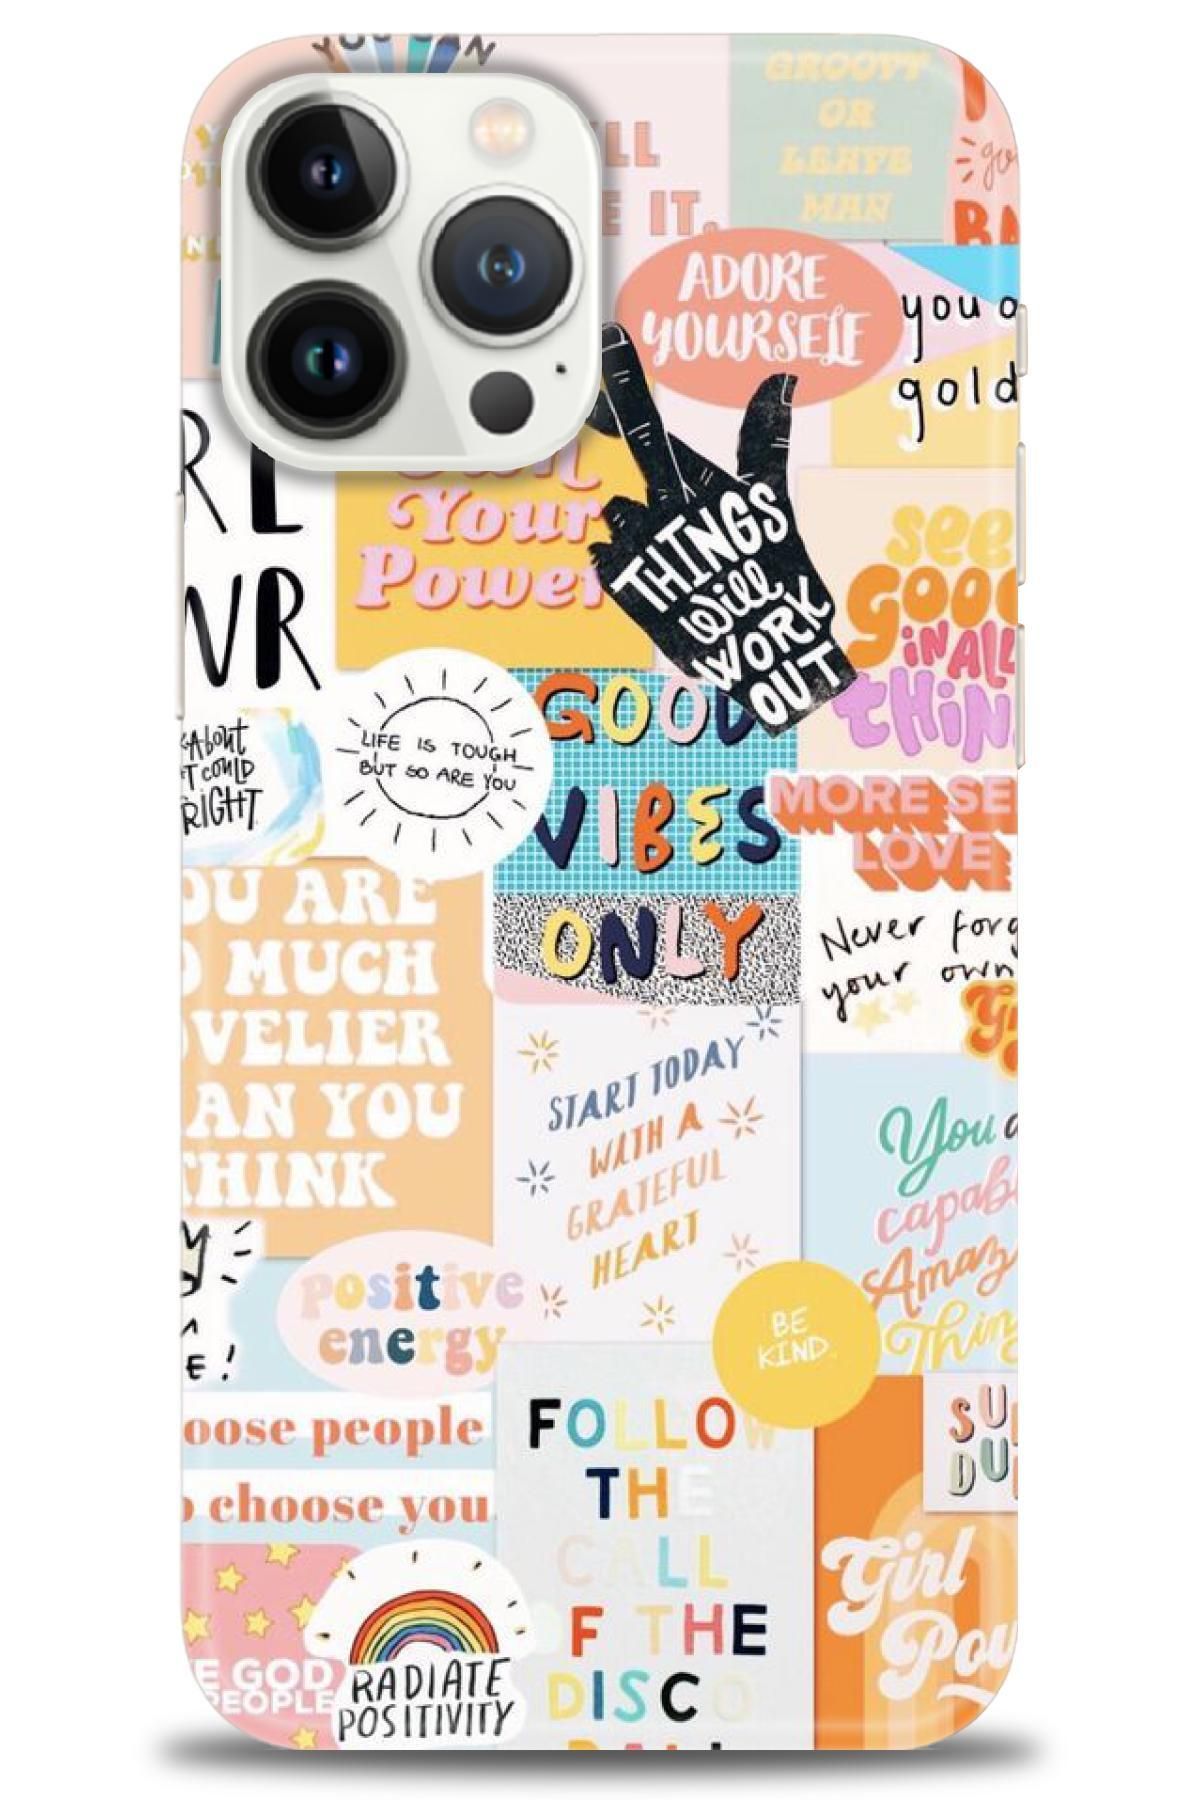 YOU CAN
GROOVY
OR
LEAVE
MAN
LL
E IT.
ADORE
YOURSELF
you a
gold
RE
WR
Own
Your
Power
THINGS
will
WORK
OUT
see
GOOD
IN ALL
THIN
About
T COULD
RIGHT
LIFE IS TOUGH
BUT SO ARE YOU
GOOD
VIBES
ONLY
MORE SE
LOVE
Never forg
your own
OU ARE
O MUCH
VELIER
AN YOU
HINK
START TODAY
WITH A
GRATEFUL
HEART
You a
capab
Amaz
Thin
positive
energy
E!
BE
KIND.
oose people
o choose you.
FOLLOW
THE
CALL
OF THE
DISCO
BALL
SU
DU
Girl
Pow
E GOD
PEOPLE
RADIATE
POSITIVITY